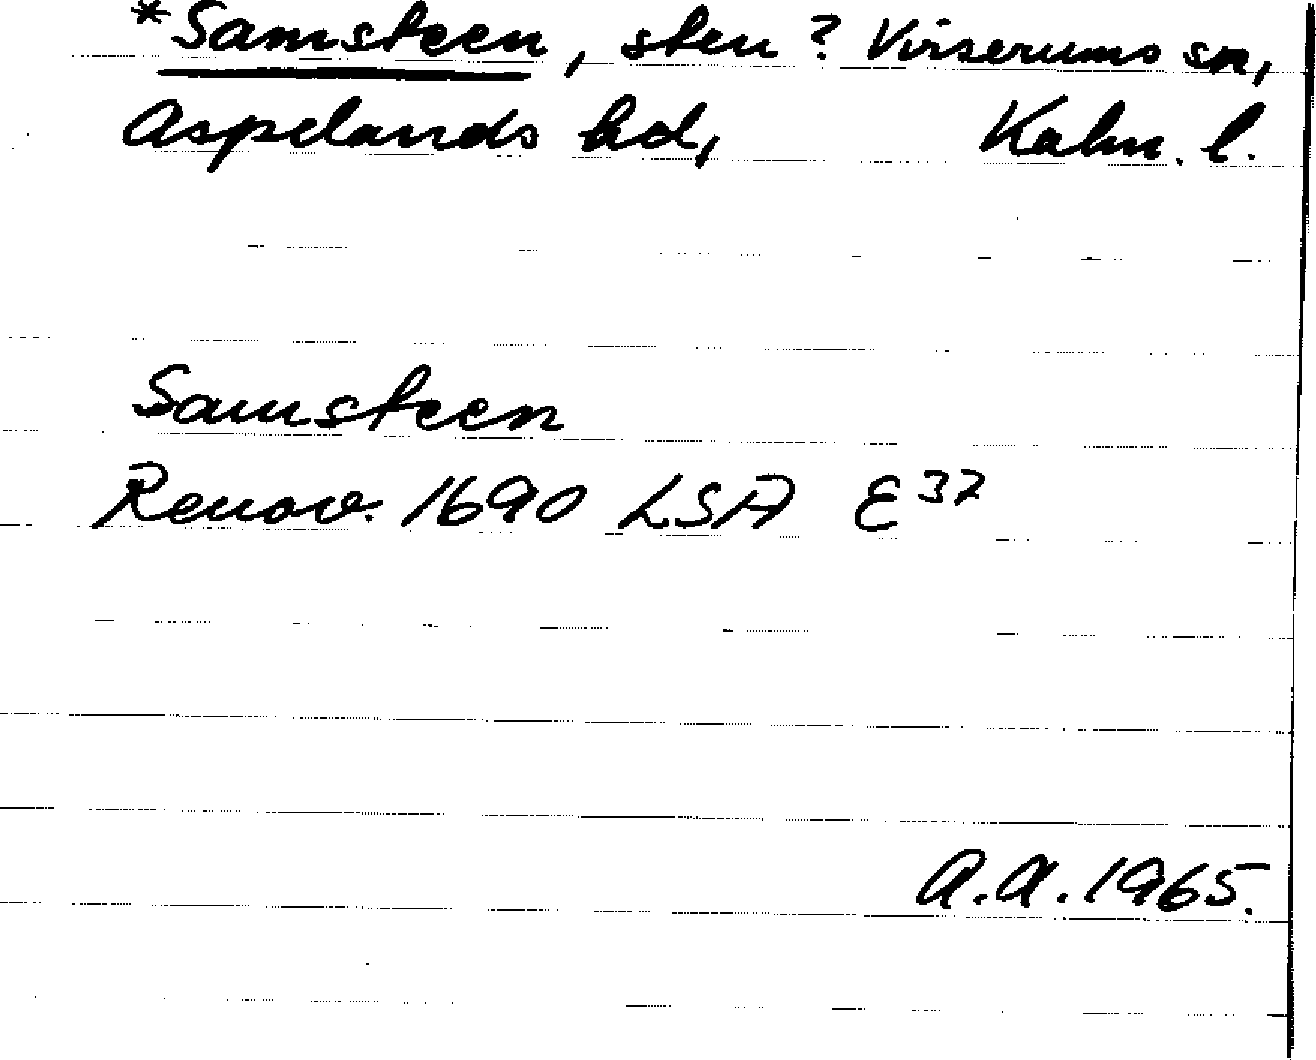 *Samsteen, sten? Virserums sn,
Aspelands hd, Kalm. l.
Samsteen
Renov. 1690 LSA E³⁷
A.A. 1965.